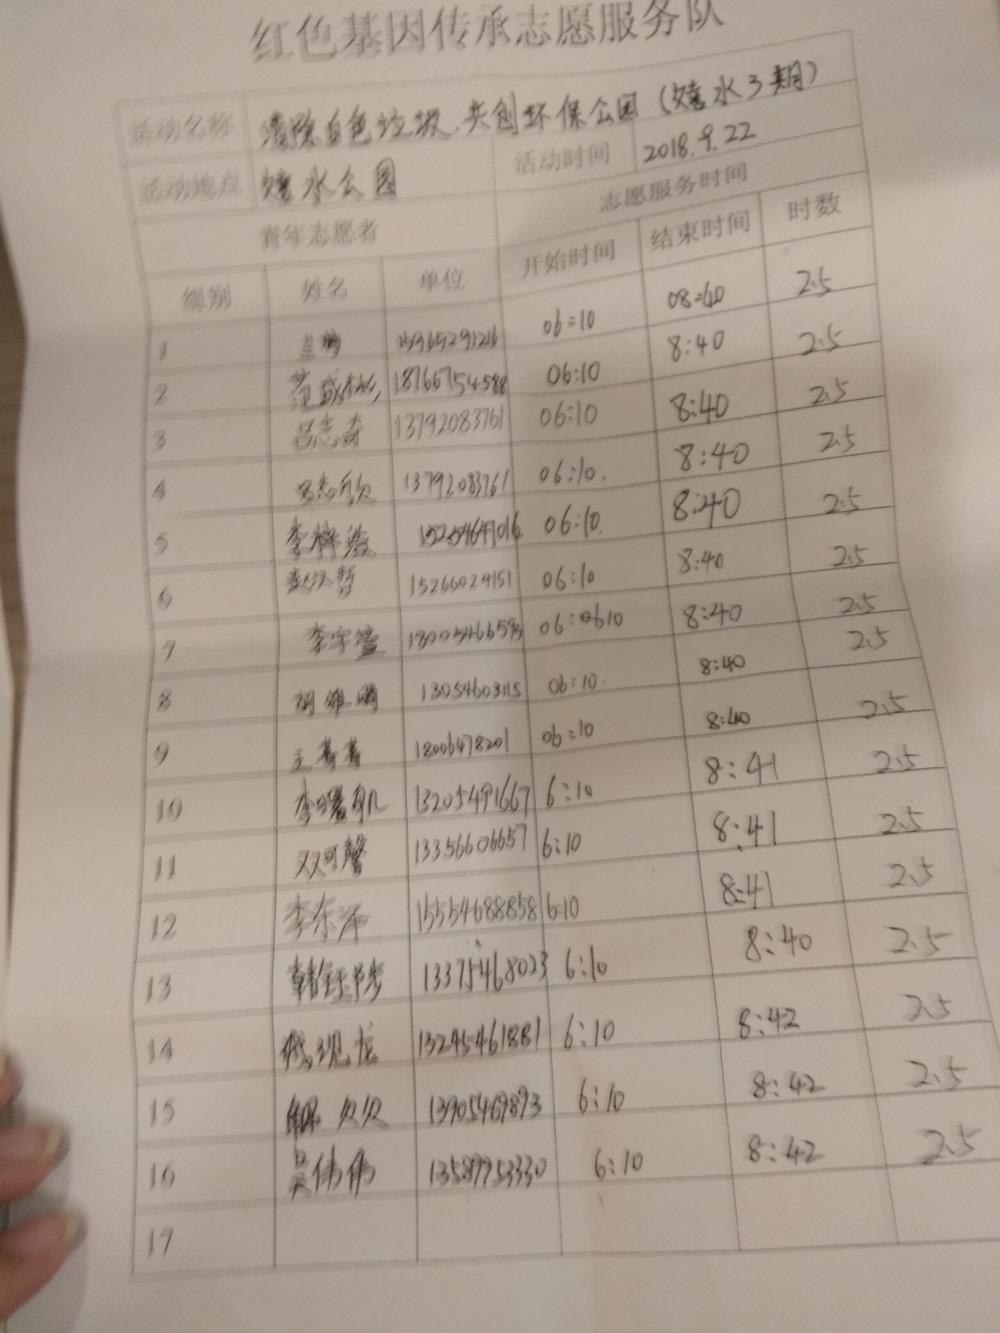 红色基因传承志愿服务队
活动名称 清除白色垃圾、共创环保公园（嬉水3期）
活动地点 嬉水公园 活动时间 2018.9.22
青年志愿者 志愿服务时间
组别 姓名 单位 开始时间 结束时间 时数
1 兰 15965291216 06:10 08:40 2.5
2 18766754588 06:10 8:40 2.5
3 吕志奇 13792083761 06:10 8:40 2.5
4 吕志欣 13792083761 06:10. 8:40 2.5
5 李梓 06:10. 8:40 2.5
6 15266024151 06:10 8:40 2.5
7 李宇萱 18005466595 06:0610 8:40 2.5
8 胡雅 13054603115 06:10. 8:40 2.5
9 王菁菁 18006478201 06:10 8:40 2.5
10 李曙帆 13205491667 6:10 8:41 2.5
11 双可馨 13356606657 6:10 8:41 2.5
12 李东泽 15554688858 6:10 8:41 2.5
13 韩钰 13375468023 6:10 8:40 2.5
14 现龙 13295461881 6:10 8:42 2.5
15 欠欠 13905469893 6:10 8:42 2.5
16 吴伟伟 13589953330 6:10 8:42 2.5
17